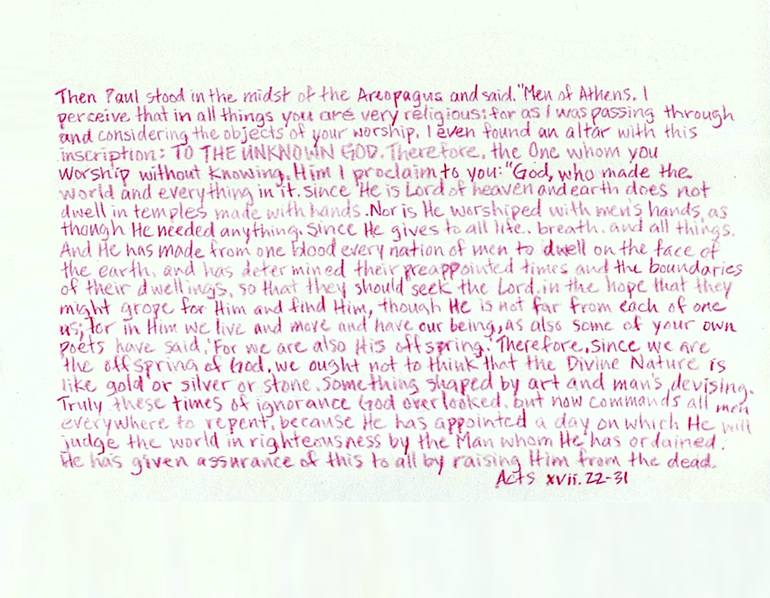 Then Paul stood in the midst of the Areopagus and said. "Men of Athens, I
perceive that in all things you are very religious; for as I was passing through
and considering the objects of your worship, I even found an altar with this
inscription: TO THE UNKNOWN GOD. Therefore, the One whom you
worship without knowing, Him I proclaim to you: "God, who made the
world and everything in it. since He is Lord of heaven and earth does not
dwell in temples made with hands. Nor is He worshiped with men's hands, as
though He needed anything. Since He gives to all life. breath. and all things.
And He has made from one blood every nation of men to dwell on the face of
the earth, and has determined their preappointed times and the boundaries
of their dwellings, so that they should seek the Lord. in the hope that they
might grope for Him and find Him, though He is not far from each of one
us; for in Him we live and move and have our being, as also some of your own
poets have said, 'For we are also His offspring.' Therefore, since we are
the offspring of God, we ought not to think that the Divine Nature is
like gold or silver or stone. Something shaped by art and man's devising.
Truly these times of ignorance God overlooked. but now commands all men
everywhere to repent, because He has appointed a day on which He will
judge the world in righteousness by the Man whom He has ordained.
He has given assurance of this to all by raising Him from the dead.
Acts xvii. 22-31